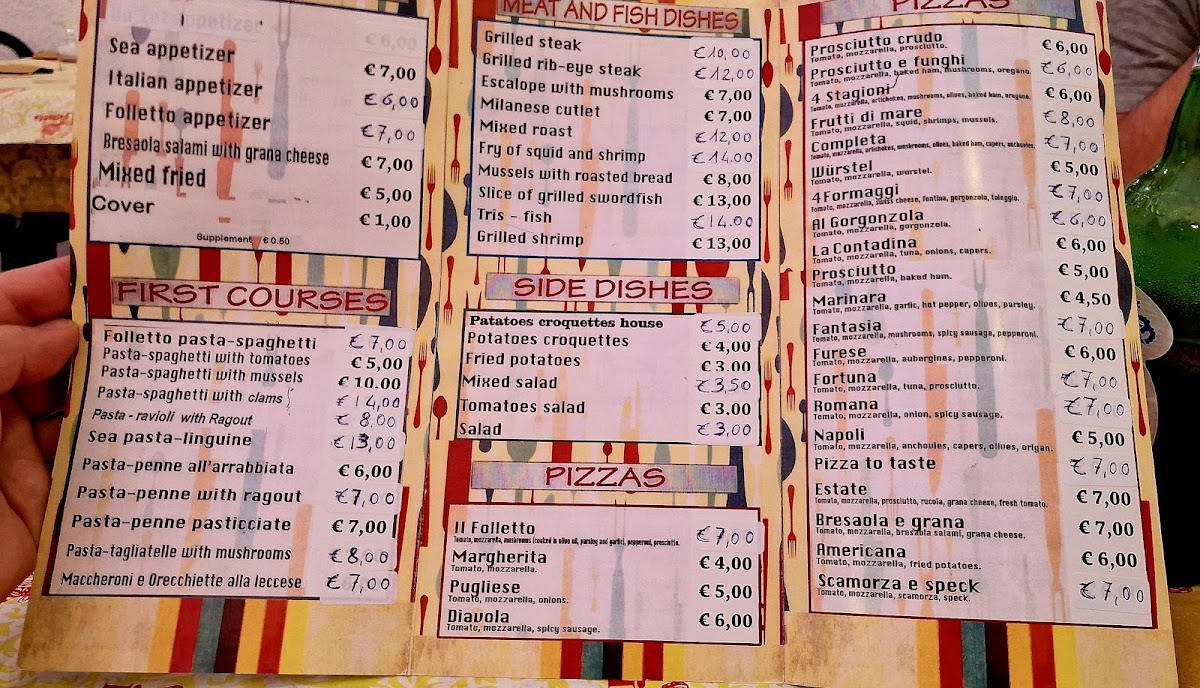 € 6,00
Sea appetizer € 7,00
Italian appetizer € 6,00
Folletto appetizer € 7,00
Bresaola salami with grana cheese € 7,00
Mixed fried € 5,00
Cover € 1,00
Supplement € 0.50
FIRST COURSES
Folletto pasta-spaghetti € 7,00
Pasta-spaghetti with tomatoes € 5,00
Pasta-spaghetti with mussels € 10.00
Pasta-spaghetti with clams € 14,00
Pasta - ravioli with Ragout € 8.00
Sea pasta-linguine € 13,00
Pasta-penne all'arrabbiata € 6,00
Pasta-penne with ragout € 7,00
Pasta-penne pasticciate € 7,00
Pasta-tagliatelle with mushrooms € 8,00
Maccheroni e Orecchiette alla leccese € 7,00
MEAT AND FISH DISHES
Grilled steak € 10,00
Grilled rib-eye steak € 12,00
Escalope with mushrooms € 7,00
Milanese cutlet € 7,00
Mixed roast € 12,00
Fry of squid and shrimp € 14.00
Mussels with roasted bread € 8,00
Slice of grilled swordfish € 13,00
Tris - fish € 14.00
Grilled shrimp € 13,00
SIDE DISHES
Patatoes croquettes house € 5,00
Potatoes croquettes € 4,00
Fried potatoes € 3.00
Mixed salad € 3,50
Tomatoes salad € 3.00
Salad € 3,00
PIZZAS
Il Folletto € 7,00
Tomato, mozzarella, mushrooms (cooked in olive oil, parsley and garlic), pepperoni, prosciutto.
Margherita € 4,00
Tomato, mozzarella.
Pugliese € 5,00
Tomato, mozzarella, onions.
Diavola € 6,00
Tomato, mozzarella, spicy sausage.
PIZZAS
Prosciutto crudo € 6,00
Tomato, mozzarella, prosciutto.
Prosciutto e funghi € 6,00
Tomato, mozzarella, baked ham, mushrooms, oregano.
4 Stagioni € 6,00
Tomato, mozzarella, artichokes, mushrooms, olives, baked ham, oregano.
Frutti di mare € 8,00
Tomato, mozzarella, squid, shrimps, mussels.
Completa € 7,00
Tomato, mozzarella, artichokes, mushrooms, olives, baked ham, capers, anchovies.
Würstel € 5,00
Tomato, mozzarella, wurstel.
4Formaggi € 7,00
Tomato, mozzarella, swiss cheese, fontina, gorgonzola, taleggio.
Al Gorgonzola € 6,00
Tomato, mozzarella, gorgonzola.
La Contadina € 6,00
Tomato, mozzarella, tuna, onions, capers.
Prosciutto € 5,00
Tomato, mozzarella, baked ham.
Marinara € 4,50
Tomato, mozzarella, garlic, hot pepper, olives, parsley.
Fantasia € 7,00
Tomato, mozzarella, mushrooms, spicy sausage, pepperoni.
Furese € 6,00
Tomato, mozzarella, aubergines, pepperoni.
Fortuna € 7,00
Tomato, mozzarella, tuna, prosciutto.
Romana € 7,00
Tomato, mozzarella, onion, spicy sausage.
Napoli € 5,00
Tomato, mozzarella, anchouies, capers, olives, origan.
Pizza to taste € 7,00
Estate € 7,00
Tomato, mozzarella, prosciutto, rucola, grana cheese, fresh tomato.
Bresaola e grana € 7,00
Tomato, mozzarella, bresaola salami, grana cheese.
Americana € 6,00
Tomato, mozzarella, fried potatoes.
Scamorza e speck € 7,00
Tomato, mozzarella, scamorza, speck.